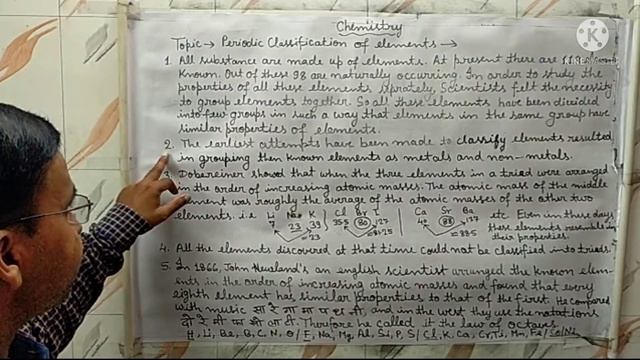 Chemistry
Topic → Periodic Classification of elements →
1. All substance are made up of elements. At present there are 118
known. Out of these 98 are naturally occurring. In order to study the
properties of all these elements seprately, Scientists felt the necessity
to group elements together. So all these elements have been divided
into few groups in such a way that elements in the same group have
similar properties of elements.
2. The earliest attempts have been made to classify elements resulted
in grouping then known elements as metals and non-metals.
3. Dobereiner showed that when the three elements in a triad were arranged
in the order of increasing atomic masses. The atomic mass of the middle
element was roughly the average of the atomic masses of the other two
elements. i.e Li Na K Cl Br I Ca Sr Ba etc. Even in these days
7 23 39 35.5 80 127 40 88 137 these elements resemble in
=23 =81.25 =88.5 their properties.
4. All the elements discovered at that time could not be classified into triads.
5. In 1866, John Newland's an english scientist arranged the known elem-
ents in the order of increasing atomic masses and found that every
eighth element has similar properties to that of the first. He compared
with music सा रे गा मा प धा नी, and in the west they use the notations
दो रे मी फा सो ला टी. Therefore he called it the law of octaves.
H, Li, Be, B, C, N, O / F, Na, Mg, Al, Si, P, S / Cl, K, Ca, Cr, Ti, Mn, Fe / Co/Ni,
KINEMASTER